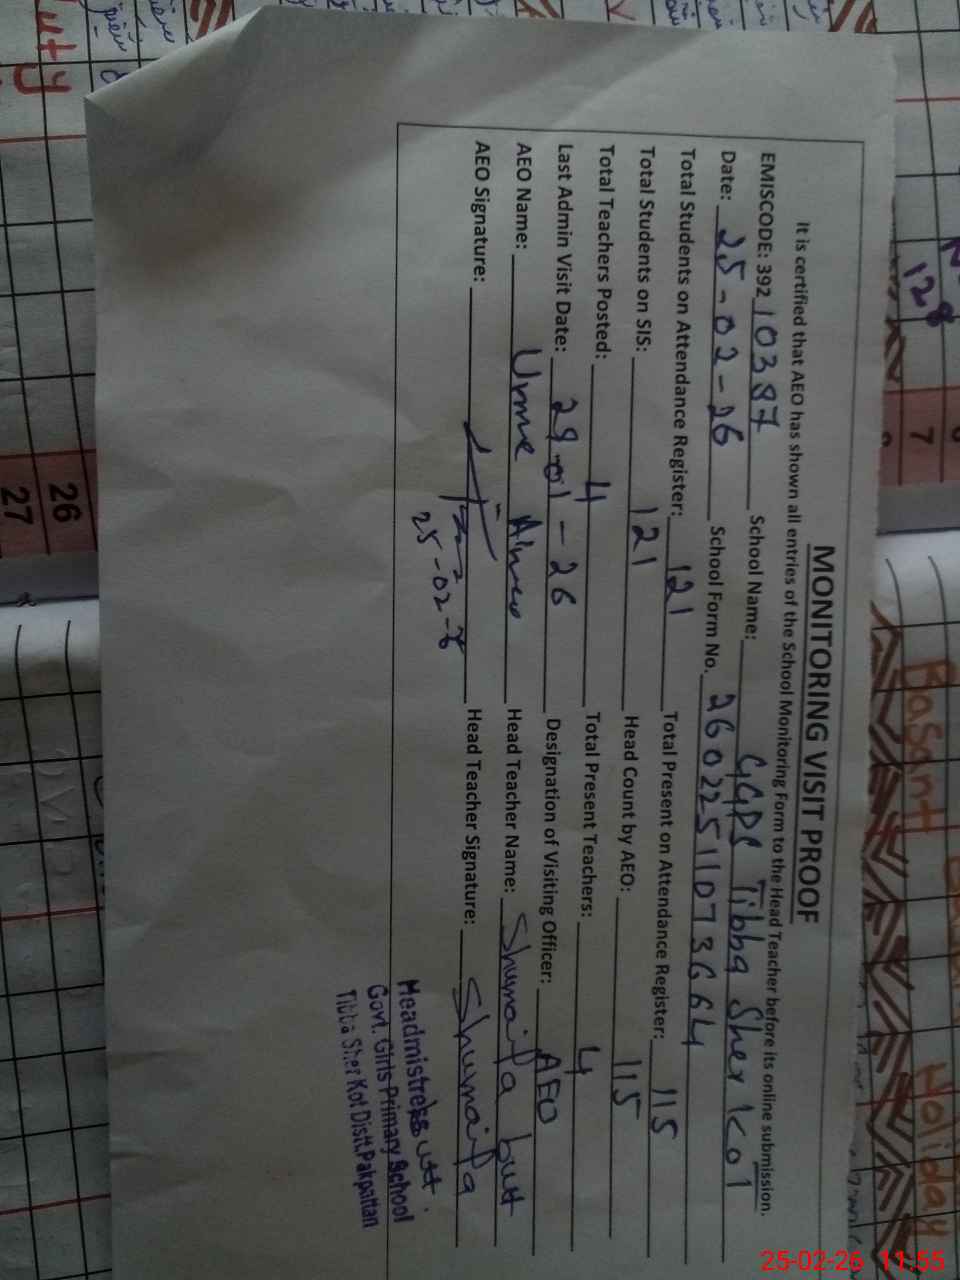 MONITORING VISIT PROOF
It is certified that AEO has shown all entries of the School Monitoring Form to the Head Teacher before its online submission.
EMISCODE: 392 10387 School Name: GGPS Tibba Sher Kot
Date: 25-02-26 School Form No. 26022511073664
Total Students on Attendance Register: 121 Total Present on Attendance Register: 115
Total Students on SIS: 121 Head Count by AEO: 115
Total Teachers Posted: 4 Total Present Teachers: 4
Last Admin Visit Date: 29-01-26 Designation of Visiting Officer: AEO
AEO Name: Head Teacher Name: Shumaila butt
AEO Signature: Head Teacher Signature: Shumaila
25-02-26
butt
Headmistress
Govt. Girls Primary School
Tibba Sher Kot Distt. Pakpattan
128
7
26
27
uty
Basant
Holiday
25-02-26 11:55